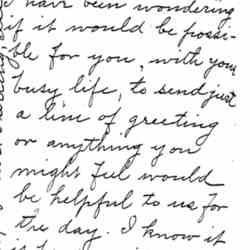 have been wondering
if it would be possi-
ble for you, with your
busy life, to send just
a line of greeting
or anything you
might feel would
be helpful to us for
the day. I know it